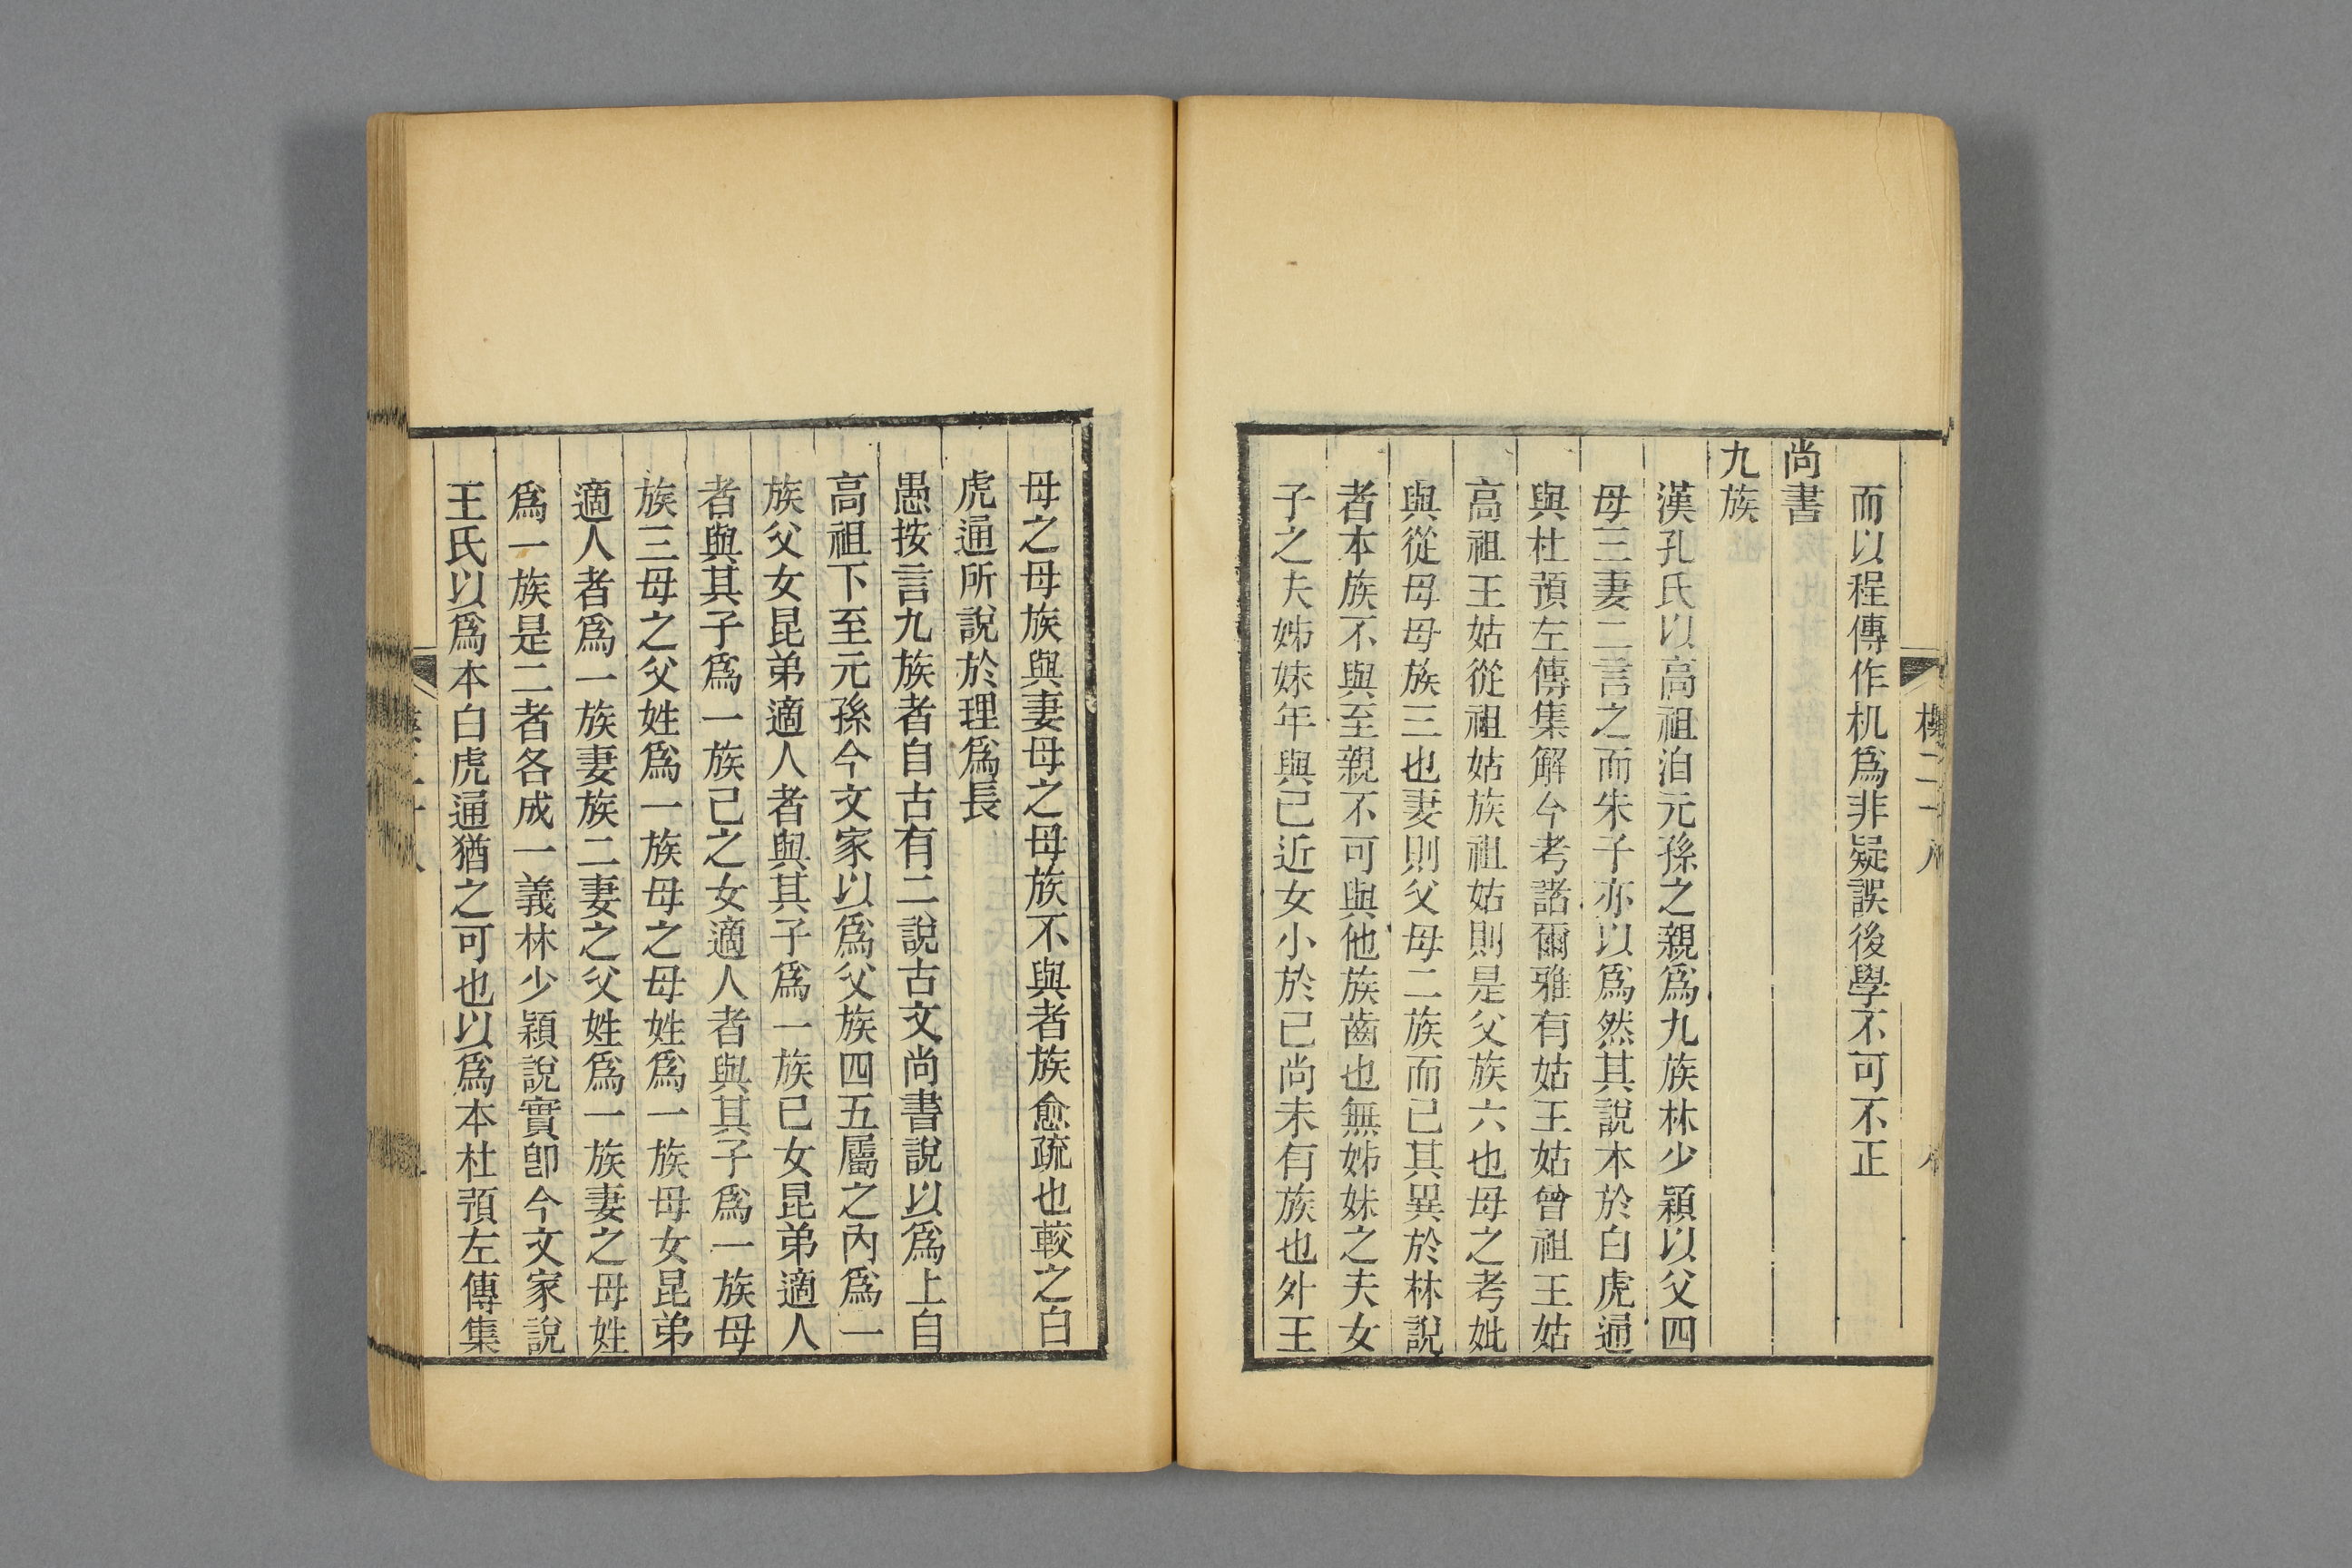 而以程傳作机爲非疑誤後學不可不正
尚書
九族
漢孔氏以高祖洎元孫之親爲九族林少穎以父四
母三妻二言之而朱子亦以爲然其說本於白虎通
與杜預左傳集解今考諸爾雅有姑王姑曾祖王姑
高祖王姑從祖姑族祖姑則是父族六也母之考妣
與從母母族三也妻則父母二族而已其異於林說
者本族不與至親不可與他族齒也無姊妹之夫女
子之夫姊妹年與已近女小於已尚未有族也外王
母之母族與妻母之母族不與者族愈疏也較之白
虎通所說於理爲長
愚按言九族者自古有二說古文尚書說以爲上自
高祖下至元孫今文家以爲父族四五屬之內爲一
族父女昆弟適人者與其子爲一族已女昆弟適人
者與其子爲一族己之女適人者與其子爲一族母
族三母之父姓爲一族母之母姓爲一族母女昆弟
適人者爲一族妻族二妻之父姓爲一族妻之母姓
爲一族是二者各成一義林少穎說實卽今文家說
王氏以爲本白虎通猶之可也以爲本杜預左傳集